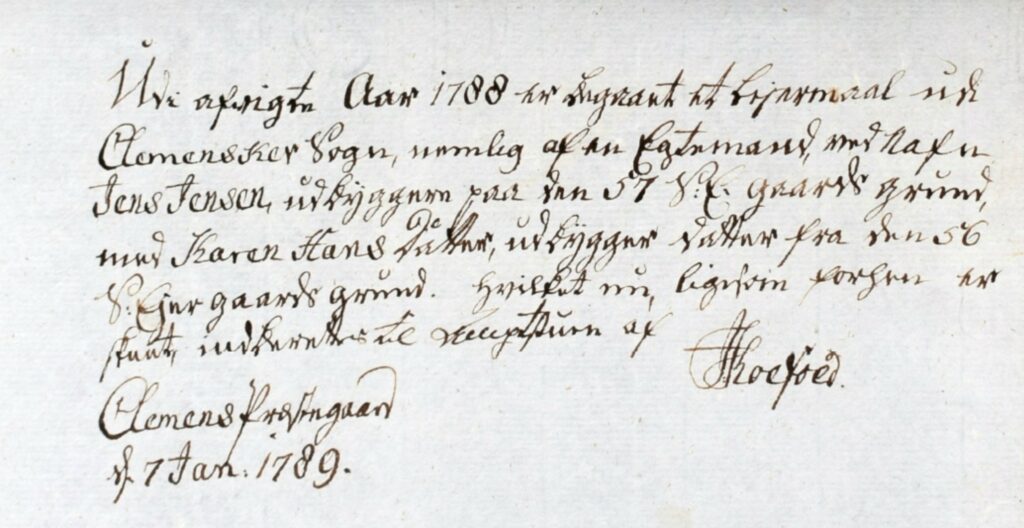 Udi afvigte Aar 1788 er begaaet et Lejermaal udi
Clemensker Sogn, nemlig af en Egtemand, ved Nafn
Jens Jensen, udbyggere paa den 57 S: E: gaards grund,
med Karen Hans Datter, udbygger datter fra den 56
S: Ejer gaards grund. Hvilket nu, ligesom forhen er
skeet, indberettes til Amptstuen af
JKoefoed.
Clemens Præstegaard
d. 7 Jan: 1789.